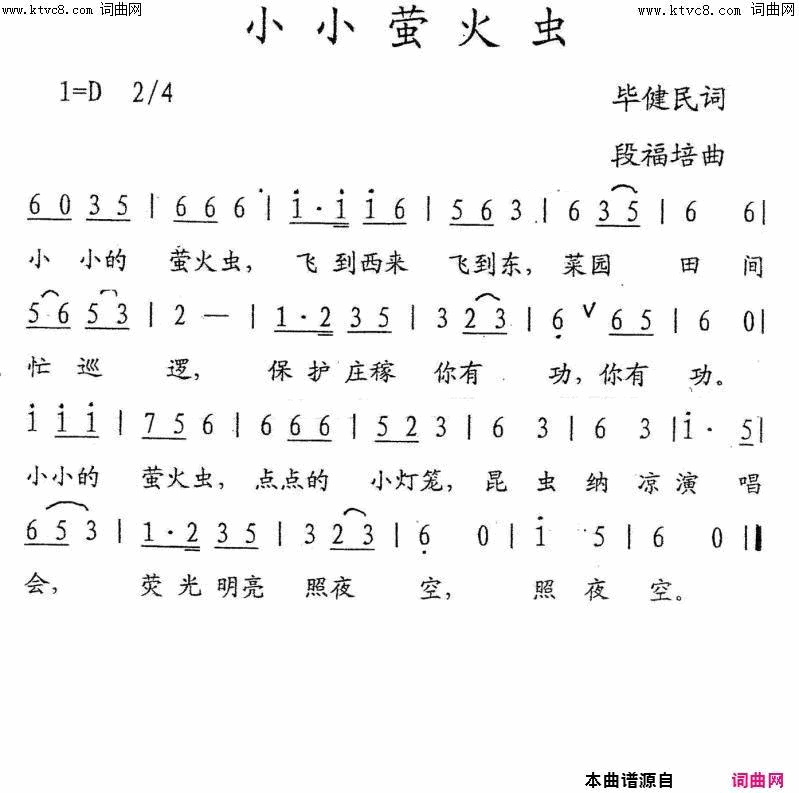 www.ktvc8.com 词曲网
www.ktvc8.com 词曲网
小小萤火虫
1=D 2/4
毕健民词
段福培曲
6 0 3 5 | 6 6 6 | i·i i 6 | 5 6 3 | 6 3 5 | 6 6 |
小 小的 萤火虫, 飞 到西来 飞到东, 菜园 田 间
5 6 5 3 | 2 — | 1·2 3 5 | 3 2 3 | 6 V 6 5 | 6 0 |
忙 巡 逻, 保 护 庄稼 你有 功, 你有 功。
i i i | 7 5 6 | 6 6 6 | 5 2 3 | 6 3 | 6 3 | i· 5 |
小小的 萤火虫, 点点的 小灯笼, 昆 虫 纳 凉 演 唱
6 5 3 | 1·2 3 5 | 3 2 3 | 6 0 | i 5 | 6 0 ‖
会, 荧 光 明亮 照夜 空, 照 夜 空。
本曲谱源自 词曲网